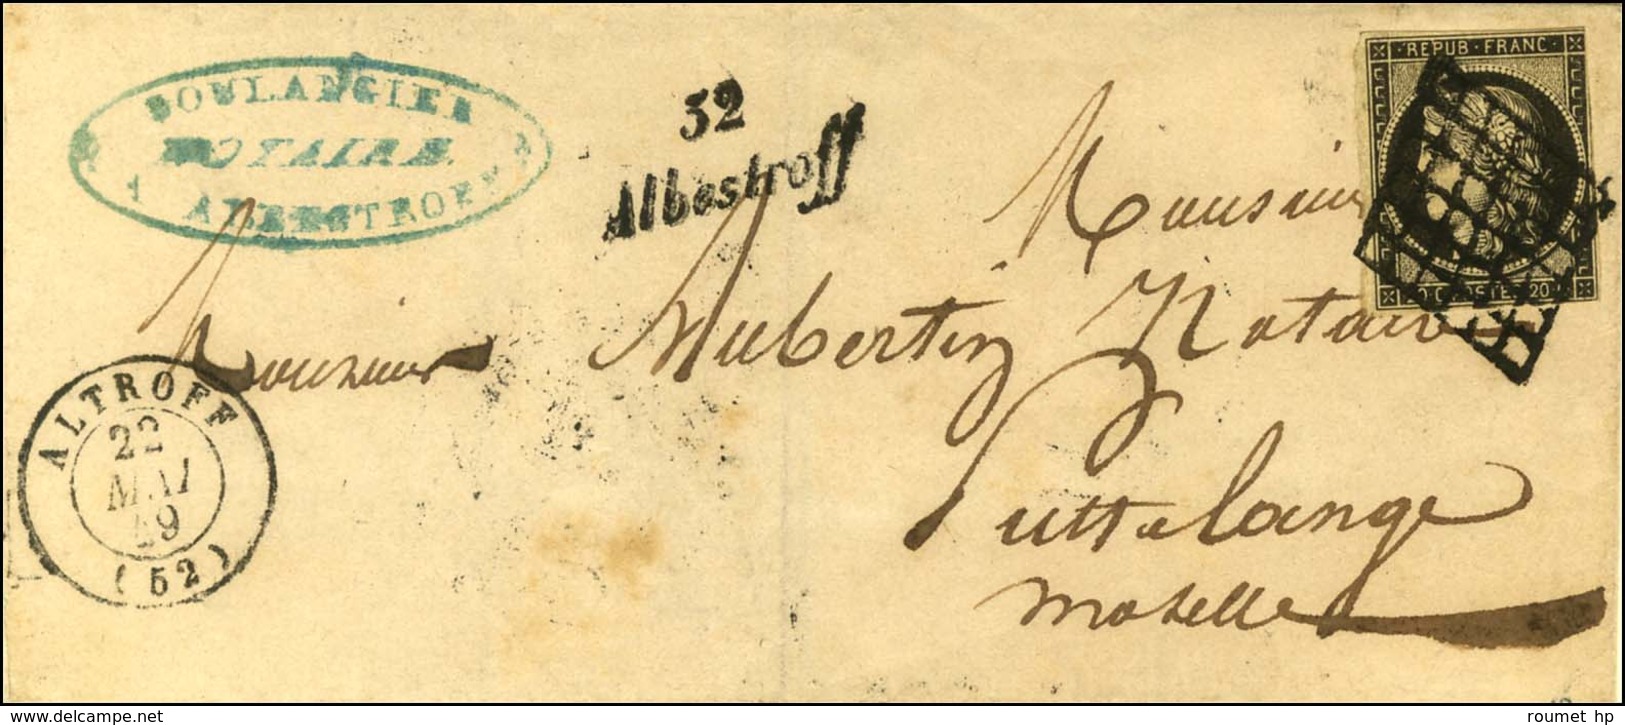 BOULANGIER
NOTAIRE
A ALBESTROFF
52
Albestroff
REPUB·FRANC
20 C POSTES 20
Monsieur
Monsieur Aubertin Notaire
Puttelange
Moselle
ALTROFF
22
MAI
49
(52)
roumet hp